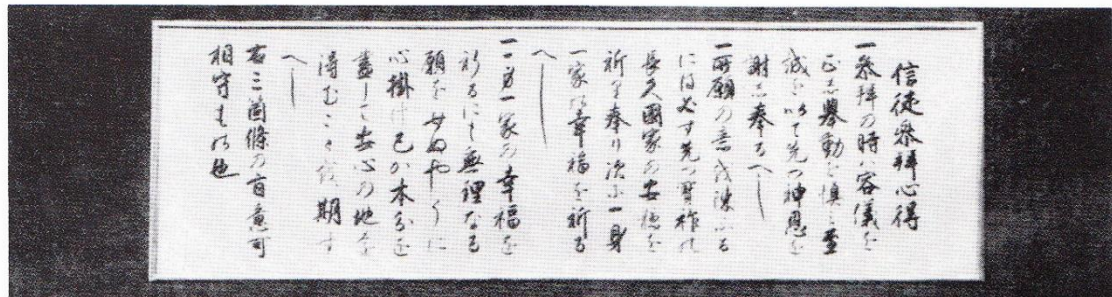 信徒参拝心得
一参拝の時ハ容儀を
正シ挙動を慎ミ至
誠を以て先つ神恩を
謝シ奉るへし
一所願の意を陳ふる
にハ必す先つ宝祚の
長久國家の安穏を
祈り奉り次ニ一身
一家の幸福を祈る
へし
一一身一家の幸福を
祈るにも無理なる
願をせぬやうに
心掛け己か本分を
盡して安心の地を
得むことを期す
へし
右三箇條の旨意可
相守もの也